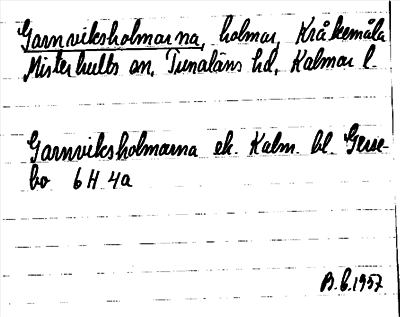 Garnviksholmarna, holmar, Kråkemåla
Misterhults sn, Tunaläns hd, Kalmar l.
Garnviksholmarna ek. Kalm. bl. Gere-
bo 6H 4a
B.E.1957